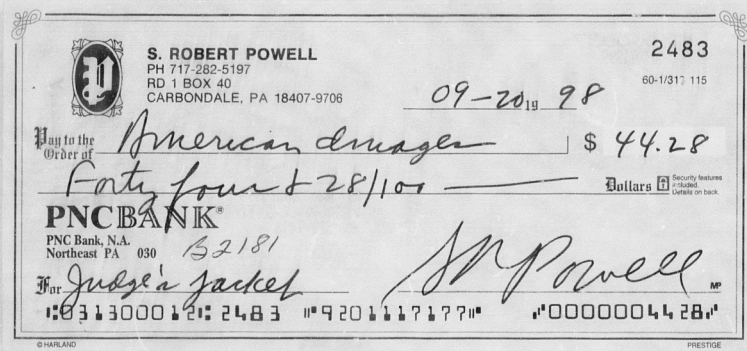 S. ROBERT POWELL
PH 717-282-5197
RD 1 BOX 40
CARBONDALE, PA 18407-9706
2483
60-1/313 115
09-20 19 98
Pay to the Order of American Images $ 44.28
Forty four & 28/100 Dollars Security features included. Details on back.
PNCBANK®
PNC Bank, N.A.
Northeast PA 030 B2181
For Judge's jacket SR Powell MP
⑆031300012⑆ 2483 ⑈9201117177⑈ ⑈0000004428⑈
© HARLAND PRESTIGE